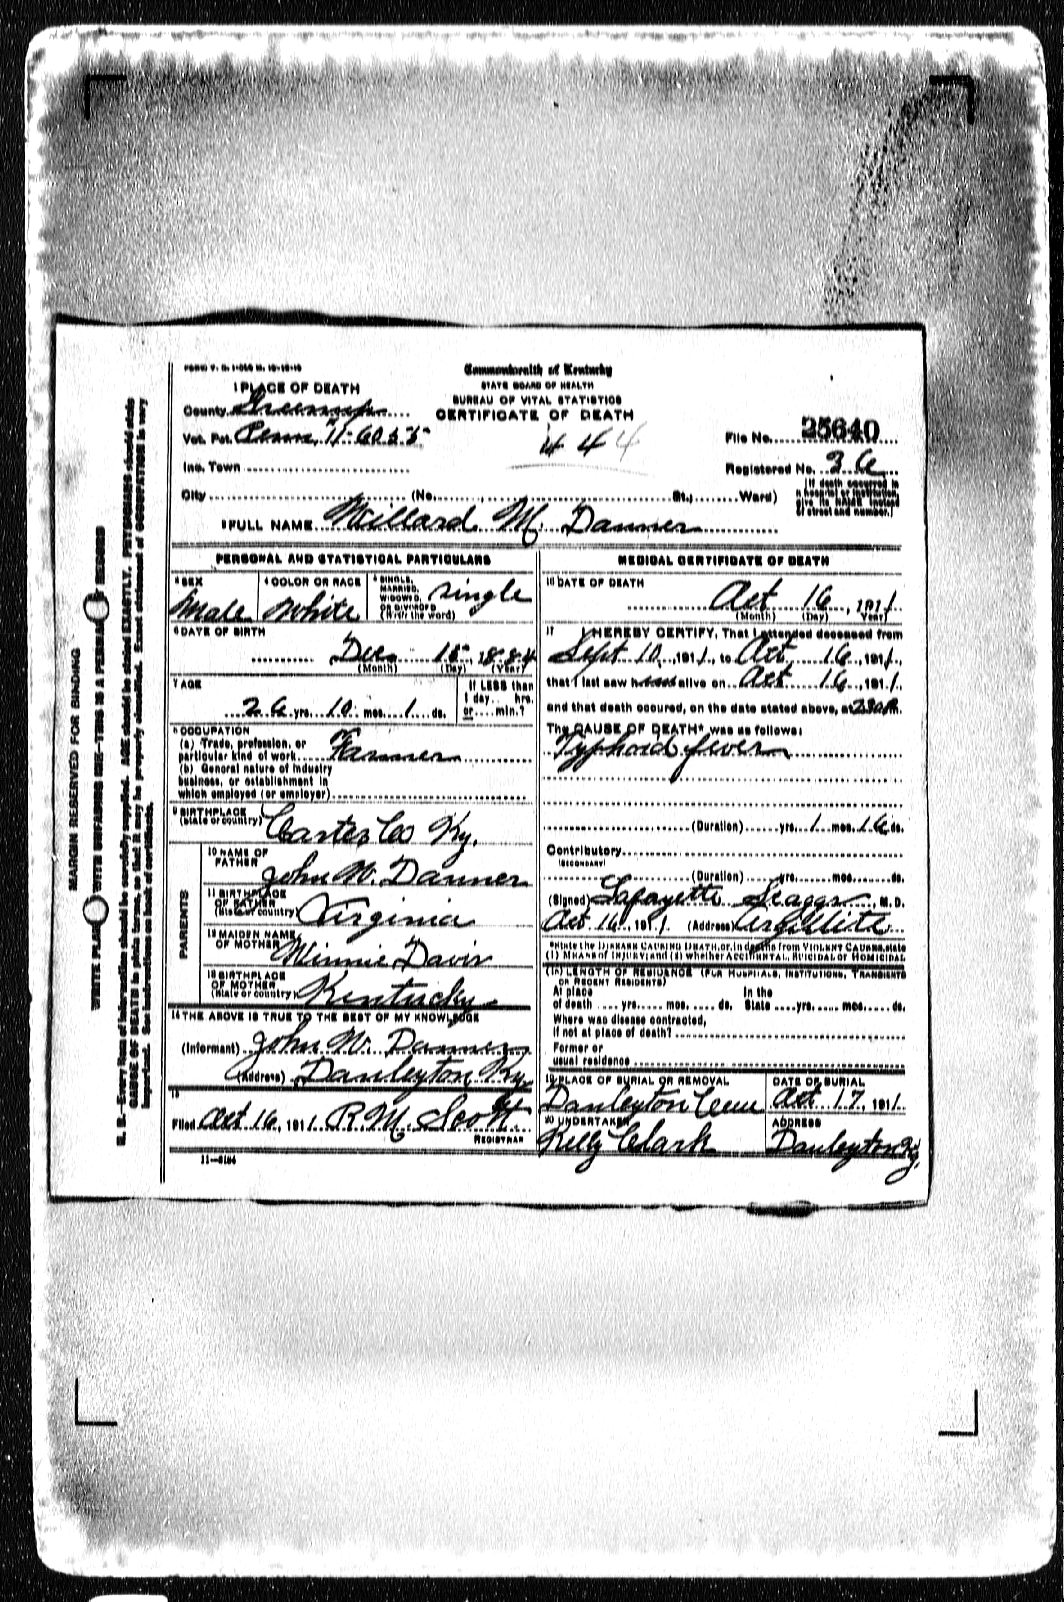 FORM V. S. 1-
Commonwealth of Kentucky
STATE BOARD OF HEALTH
BUREAU OF VITAL STATISTICS
CERTIFICATE OF DEATH
1 PLACE OF DEATH
County Greenup
Vot. Pct. Penn, 11-6055
444
File No. 25640
Inc. Town
Registered No. 36
City (No. , St.; Ward)
(If death occurred in
a hospital or institution,
give its NAME instead
of street and number.)
2 FULL NAME Millard M. Danner
PERSONAL AND STATISTICAL PARTICULARS
3 SEX
Male
4 COLOR OR RACE
White
5 SINGLE,
MARRIED,
WIDOWED,
OR DIVORCED
(Write the word)
Single
6 DATE OF BIRTH
Dec 15, 1884
(Month) (Day) (Year)
7 AGE
26 yrs. 10 mos. 1 ds.
If LESS than
1 day... hrs.
or... min.?
8 OCCUPATION
(a) Trade, profession, or
particular kind of work Farmer
(b) General nature of industry
business, or establishment in
which employed (or employer)
9 BIRTHPLACE
(State or country) Carter Co Ky.
PARENTS
10 NAME OF
FATHER John W. Danner
11 BIRTHPLACE
OF FATHER
(State or country) Virginia
12 MAIDEN NAME
OF MOTHER Minnie Davis
13 BIRTHPLACE
OF MOTHER
(State or country) Kentucky
14 THE ABOVE IS TRUE TO THE BEST OF MY KNOWLEDGE
(Informant) John W. Danner
(Address) Danleyton, Ky.
15
Filed Oct 16, 1911. R. M. Scott.
REGISTRAR
11-3184
MEDICAL CERTIFICATE OF DEATH
16 DATE OF DEATH
Oct 16, 1911
(Month) (Day) (Year)
17 I HEREBY CERTIFY, That I attended deceased from
Sept 10, 1911, to Oct 16, 1911,
that I last saw him alive on Oct 16, 1911,
and that death occured, on the date stated above, at 230 P.m.
The CAUSE OF DEATH* was as follows:
Typhoid fever
(Duration) yrs. 1 mos. 16 ds.
Contributory
(SECONDARY)
(Duration) yrs. mos. ds.
(Signed) Lafayette Scaggs, M. D.
Oct 16, 1911 (Address) Argillite
*State the DISEASE CAUSING DEATH, or, in deaths from VIOLENT CAUSES, state
(1) MEANS OF INJURY; and (2) whether ACCIDENTAL, SUICIDAL or HOMICIDAL
18 LENGTH OF RESIDENCE (FOR HOSPITALS, INSTITUTIONS, TRANSIENTS
OR RECENT RESIDENTS)
At place In the
of death yrs. mos. ds. State yrs. mos. ds.
Where was disease contracted,
if not at place of death?
Former or
usual residence
19 PLACE OF BURIAL OR REMOVAL
Danleyton Cem
DATE OF BURIAL
Oct 17, 1911.
20 UNDERTAKER
Kelly Clark
ADDRESS
Danleyton Ky.
MARGIN RESERVED FOR BINDING
WRITE PLAINLY WITH UNFADING INK—THIS IS A PERMANENT RECORD
N. B.—Every item of information should be carefully supplied. AGE should be stated EXACTLY. PHYSICIANS should state
CAUSE OF DEATH in plain terms, so that it may be properly classified. Exact statement of OCCUPATION is very
important. See instructions on back of certificate.